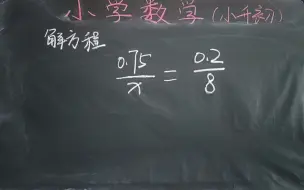 小学数学(小升初)
解方程
0.75/x = 0.2/8